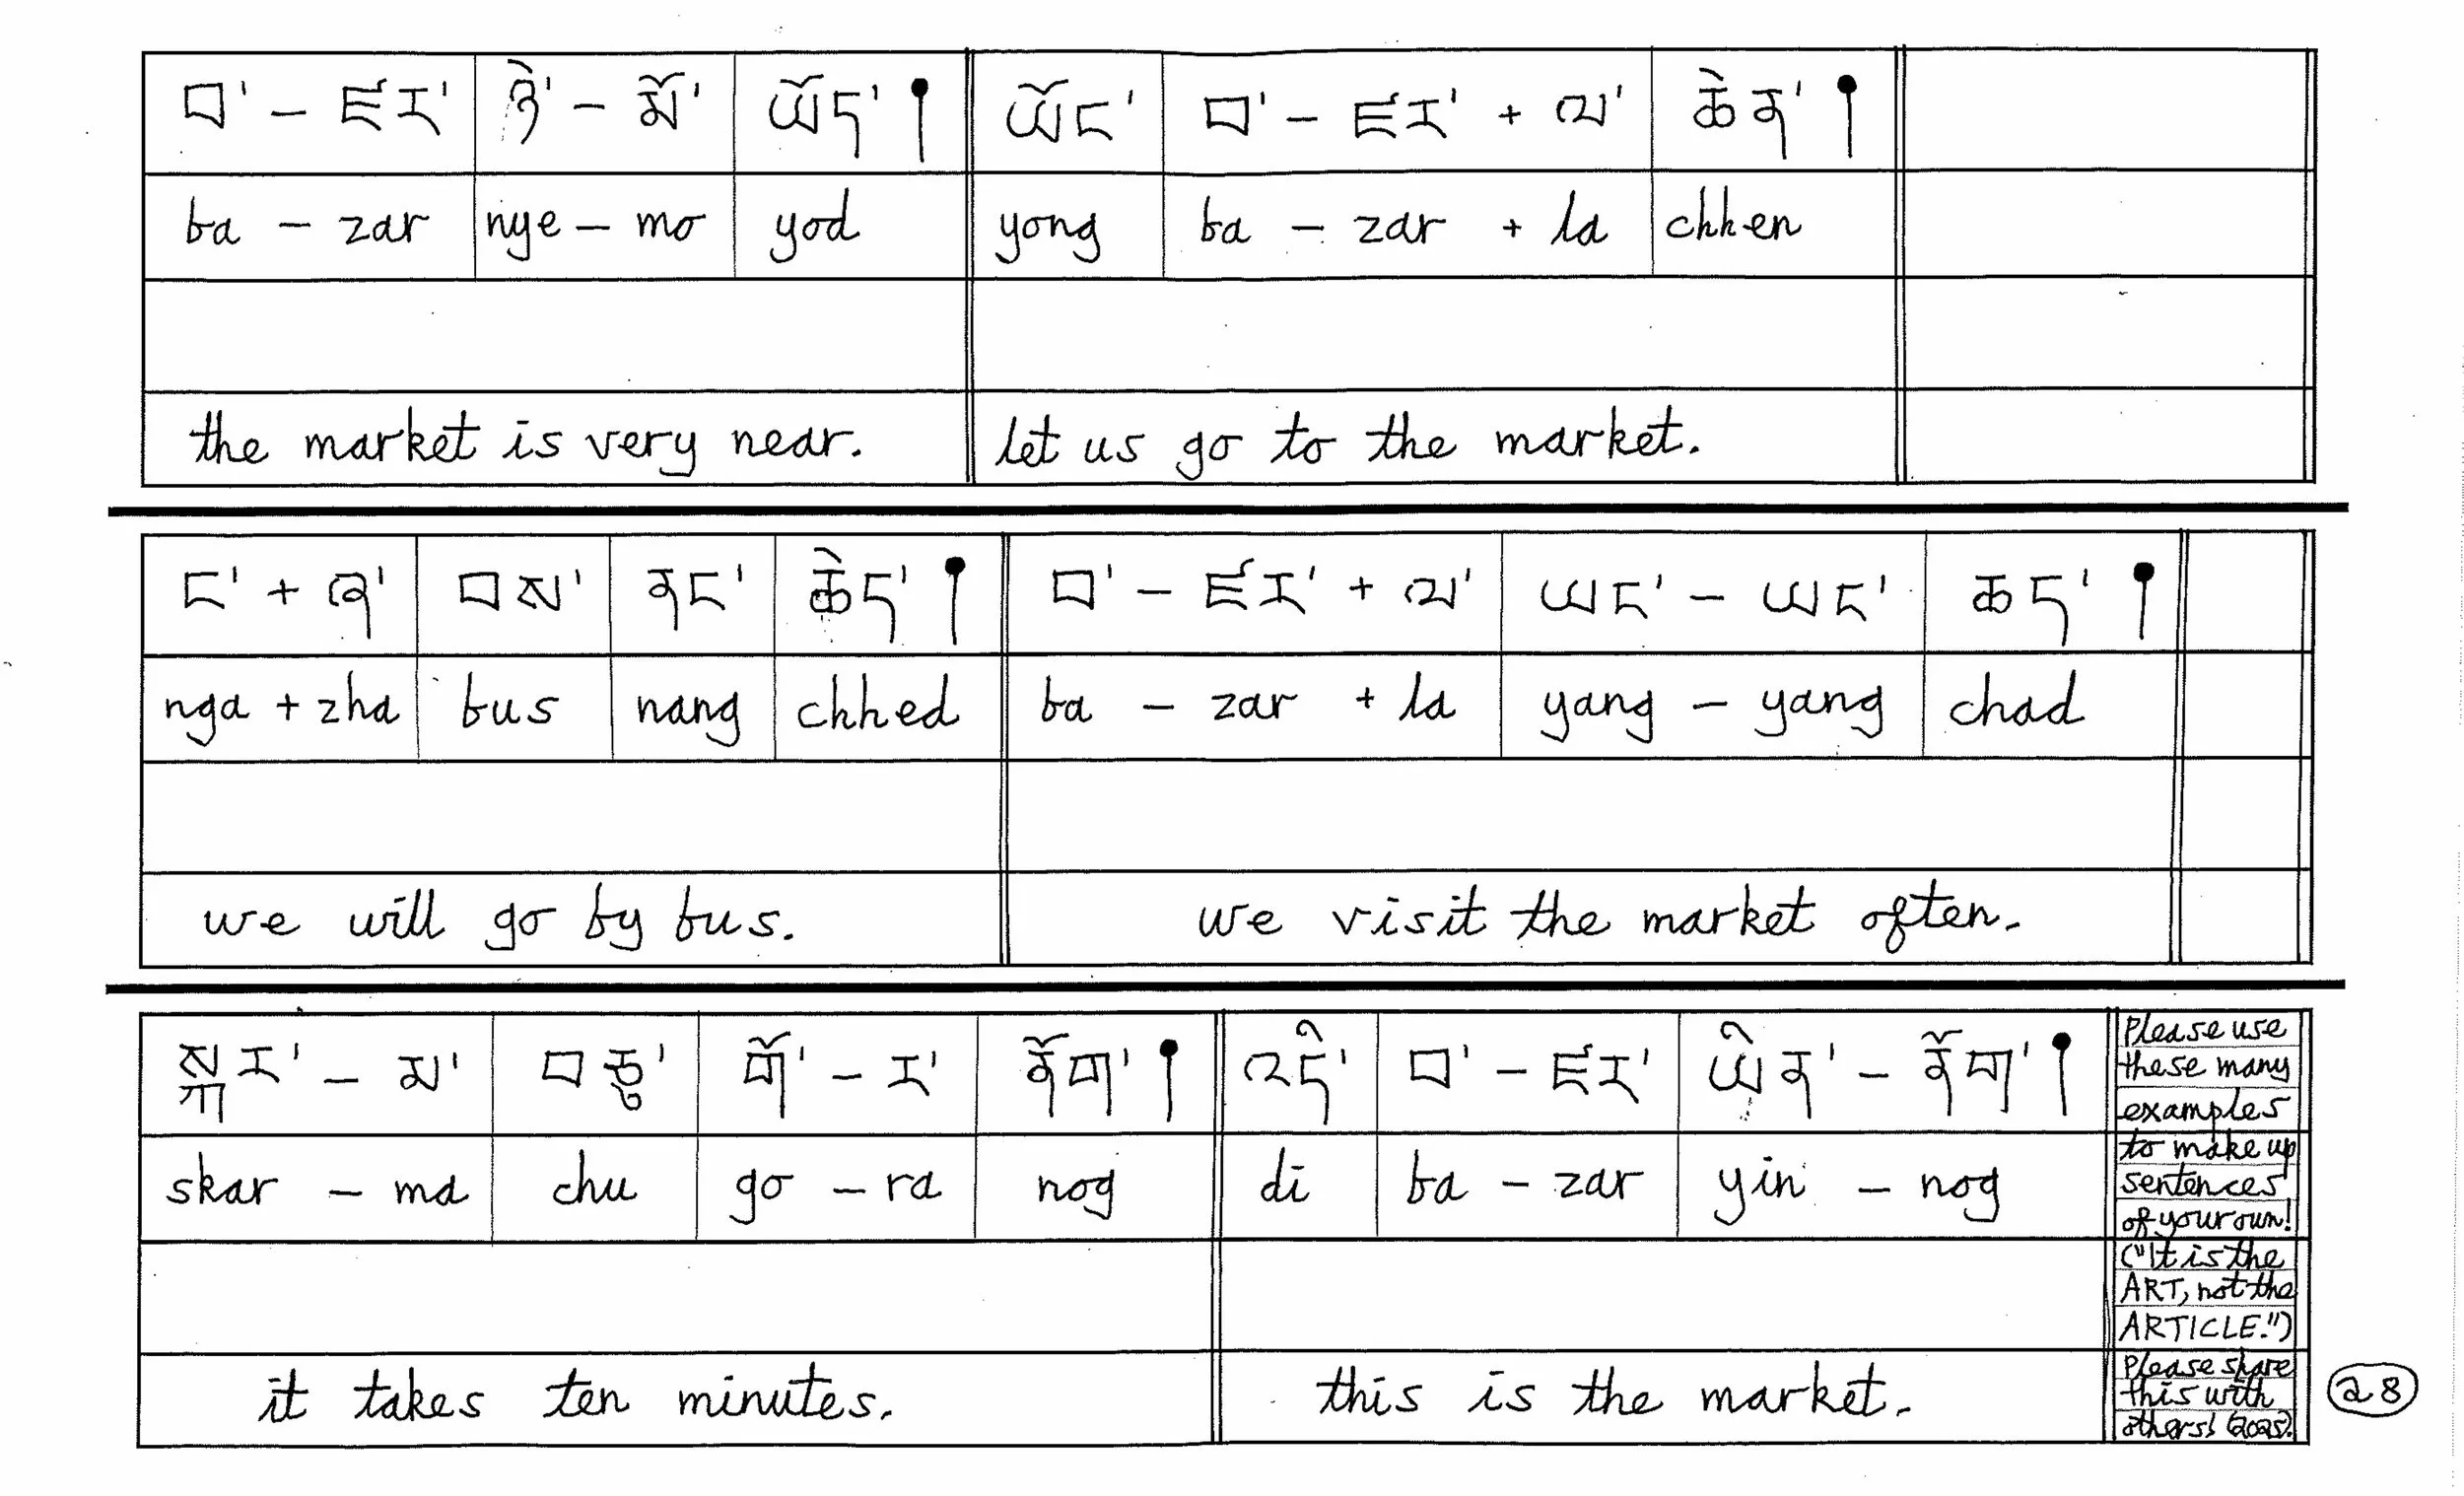 བ་ – ཛར་ ཉེ་ – མོ་ ཡོད་ །
ཡོང་ བ་ – ཛར་ + ལ་ ཆེན་ །
ba – zar nye – mo yod
yong ba – zar + la chhen
the market is very near.
let us go to the market.
ང་ + ཞ་ བས་ ནང་ ཆེད་ །
བ་ – ཛར་ + ལ་ ཡང་ – ཡང་ ཆད་ །
nga + zha bus nang chhed
ba – zar + la yang – yang chad
we will go by bus.
we visit the market often.
སྐར་ – མ་ བཅུ་ གོ་ – ར་ ནོག་ །
འདི་ བ་ – ཛར་ ཡིན་ – ནོག་ །
skar – ma chu go – ra nog
di ba – zar yin – nog
it takes ten minutes.
this is the market.
Please use
these many
examples
to make up
sentences
of your own!
("It is the
ART, not the
ARTICLE.")
Please share
this with
others! (2025).
28